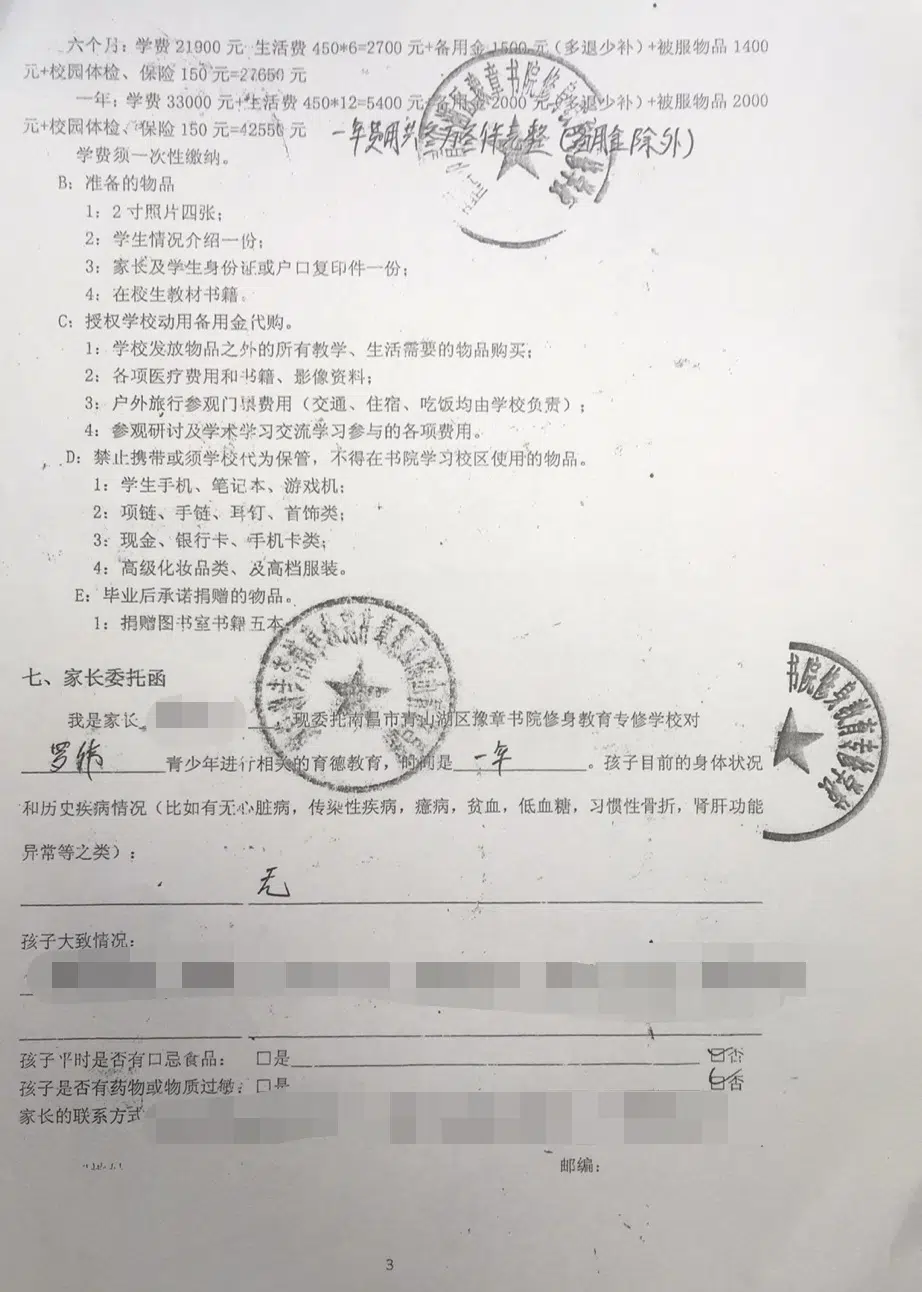 六个月：学费 21900 元 生活费 450*6=2700 元+备用金 1500 元（多退少补）+被服物品 1400
元+校园体检、保险 150 元=27650 元
一年：学费 33000 元+生活费 450*12=5400 元+备用金 2000 元（多退少补）+被服物品 2000
元+校园体检、保险 150 元=42550 元
一年费用共叁万叁仟元整（备用金除外）
学费须一次性缴纳。
B：准备的物品
1：2 寸照片四张；
2：学生情况介绍一份；
3：家长及学生身份证或户口复印件一份；
4：在校生教材书籍。
C：授权学校动用备用金代购。
1：学校发放物品之外的所有教学、生活需要的物品购买；
2：各项医疗费用和书籍、影像资料；
3：户外旅行参观门票费用（交通、住宿、吃饭均由学校负责）；
4：参观研讨及学术学习交流学习参与的各项费用。
D：禁止携带或须学校代为保管，不得在书院学习校区使用的物品。
1：学生手机、笔记本、游戏机；
2：项链、手链、耳钉、首饰类；
3：现金、银行卡、手机卡类；
4：高级化妆品类、及高档服装。
E：毕业后承诺捐赠的物品。
1：捐赠图书室书籍五本
七、家长委托函
我是家长 现委托南昌市青山湖区豫章书院修身教育专修学校对
罗伟 青少年进行相关的育德教育，时间是 一年 。孩子目前的身体状况
和历史疾病情况（比如有无心脏病，传染性疾病，癔病，贫血，低血糖，习惯性骨折，肾肝功能
异常等之类）：
无
孩子大致情况：
孩子平时是否有口忌食品： 口是 口否
孩子是否有药物或物质过敏：口是 口否
家长的联系方式
邮编：
3
书院修身教育专修学校